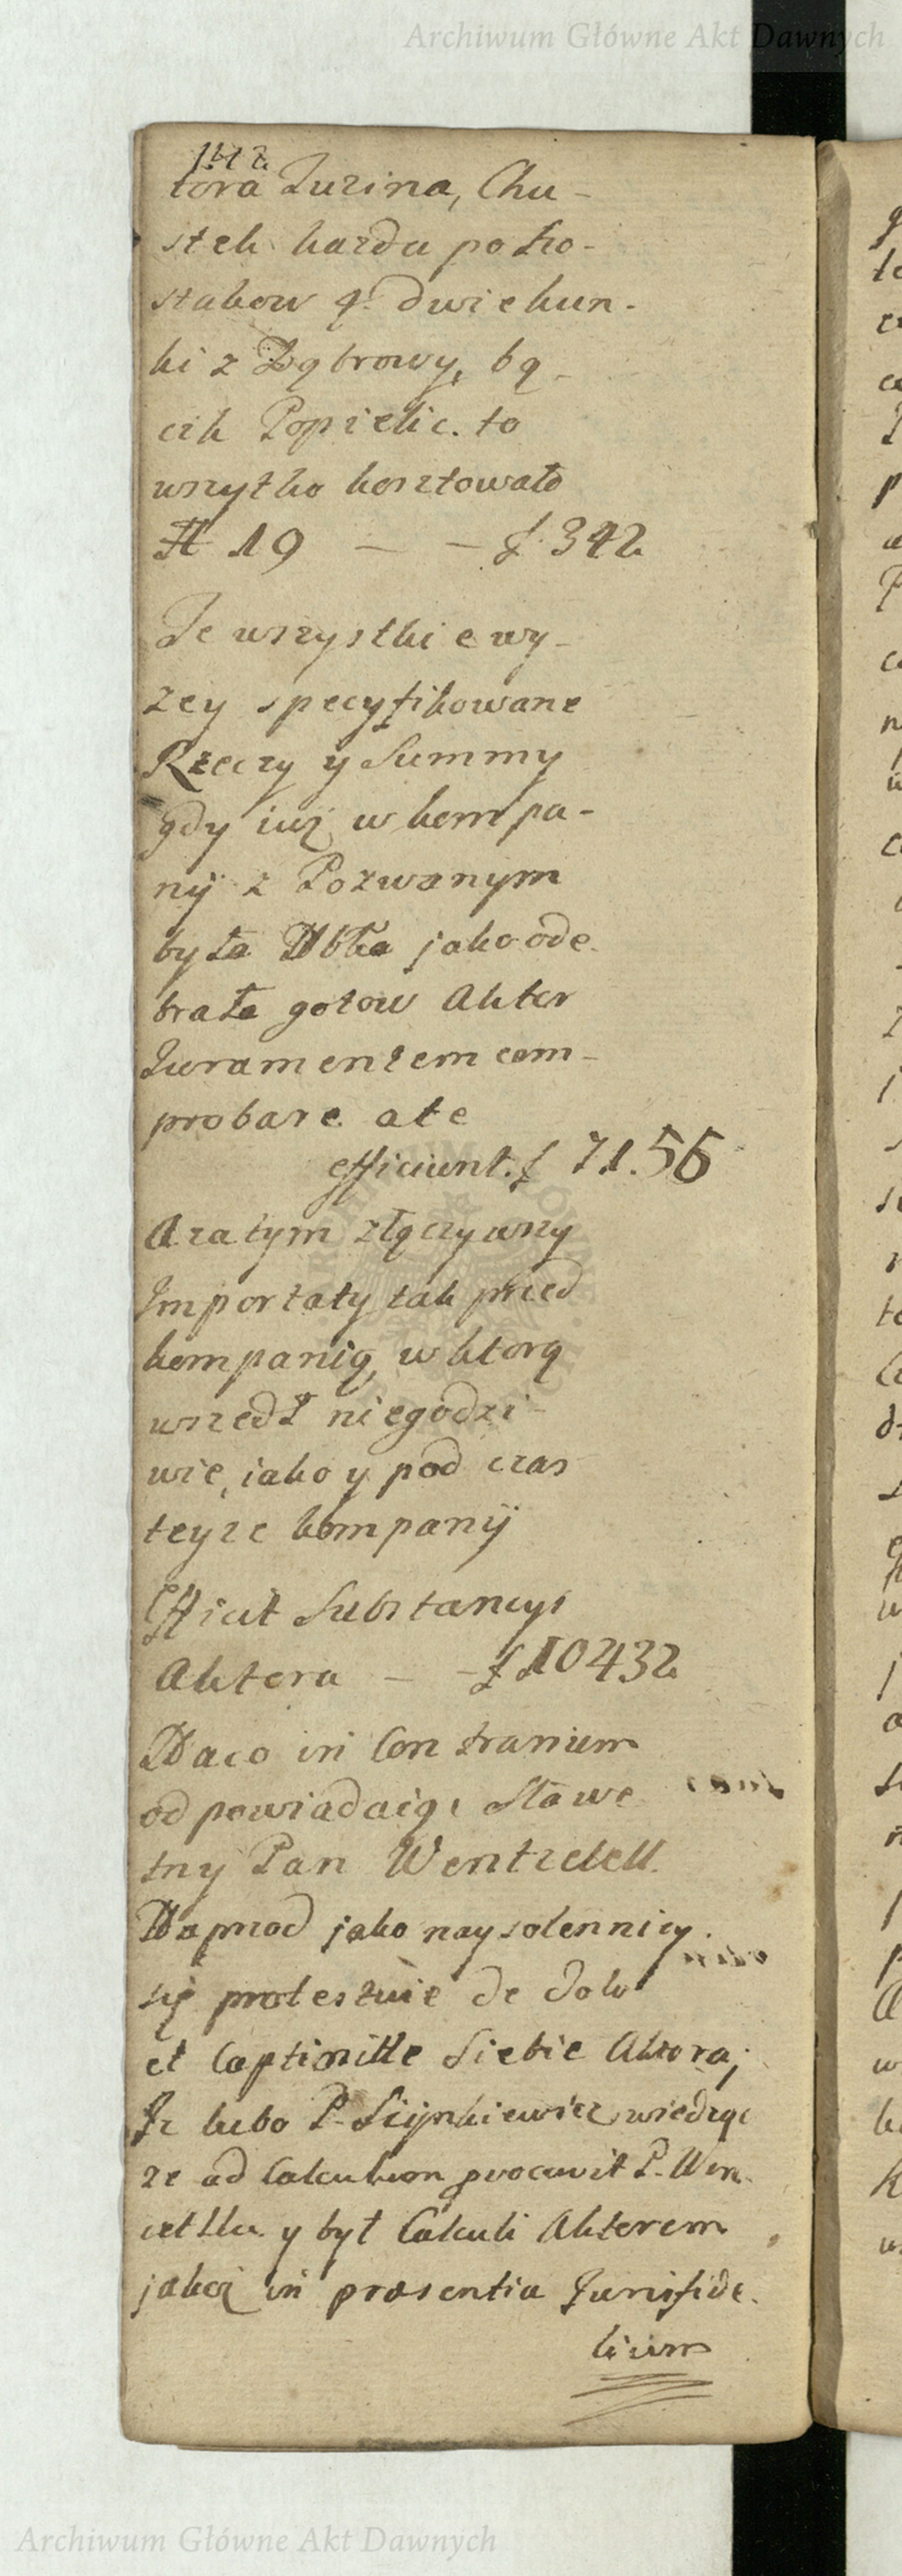 Archiwum Główne Akt Dawnych
142
tora Tuzina, Chu-
stek kazda po
stakow q. dwie kun-
ki z Dąbrowy, bą-
cik Popielic. to
wszytko kosztowało
# 19 — — f. 342
Ze wszystkie wy-
zey specyfikowane
Rzeczy y Summy
gdy iuz w kompa-
nij z Pozwanym
była jako ode-
brała gotow Aktor
Juramentem com-
probare ate
efficiunt. f 71.56
A za tym złączywszy
Importaty tak przed
kompanią, w ktorą
wszedł niegodzi-
wie, iako y pod czas
teyze kompanij
Efficit Substancyi
Aktora — — f 10432
Na co in Contrarium
odpowiadaiąc Sławe-
tny Pan Wentzdell.
Naprzod jako naysolenniey.
się protestuie de dolo
et Captivitte Siebie Aktora;
Iz lubo P. Szynkiewicz wiedząc
ze ad Calculum provocavit P. Wen-
cella y był Calculi Aktorem
jakoz in præsentia Jurisfide-
lium
Archiwum Główne Akt Dawnych